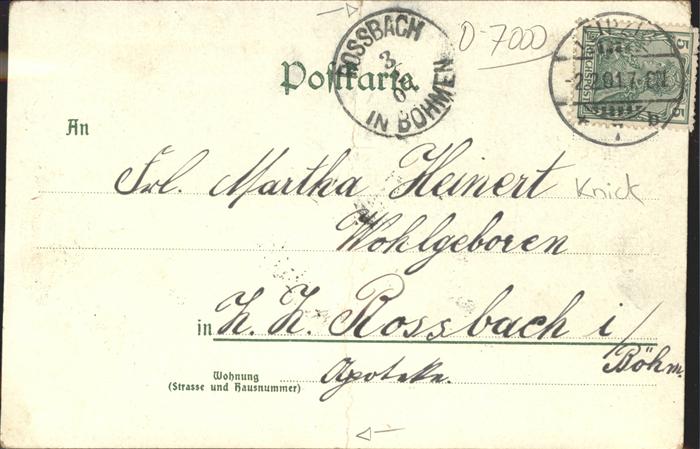 ROSSBACH
3
IN BÖHMEN
0-7000
5
REICHSPOST
5
Postkarte.
An
Frl. Martha Heinert
Knick
Wohlgeboren
in Z. Z. Rossbach i/
Böhm.
Wohnung
(Strasse und Hausnummer)
Apoteke.